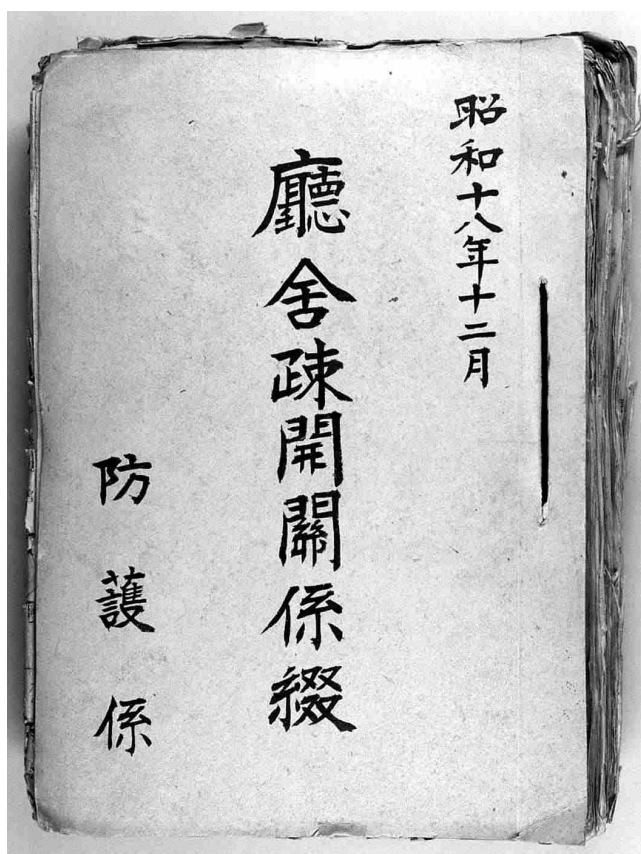 昭和十八年十二月
廳舍疎開關係綴
防護係